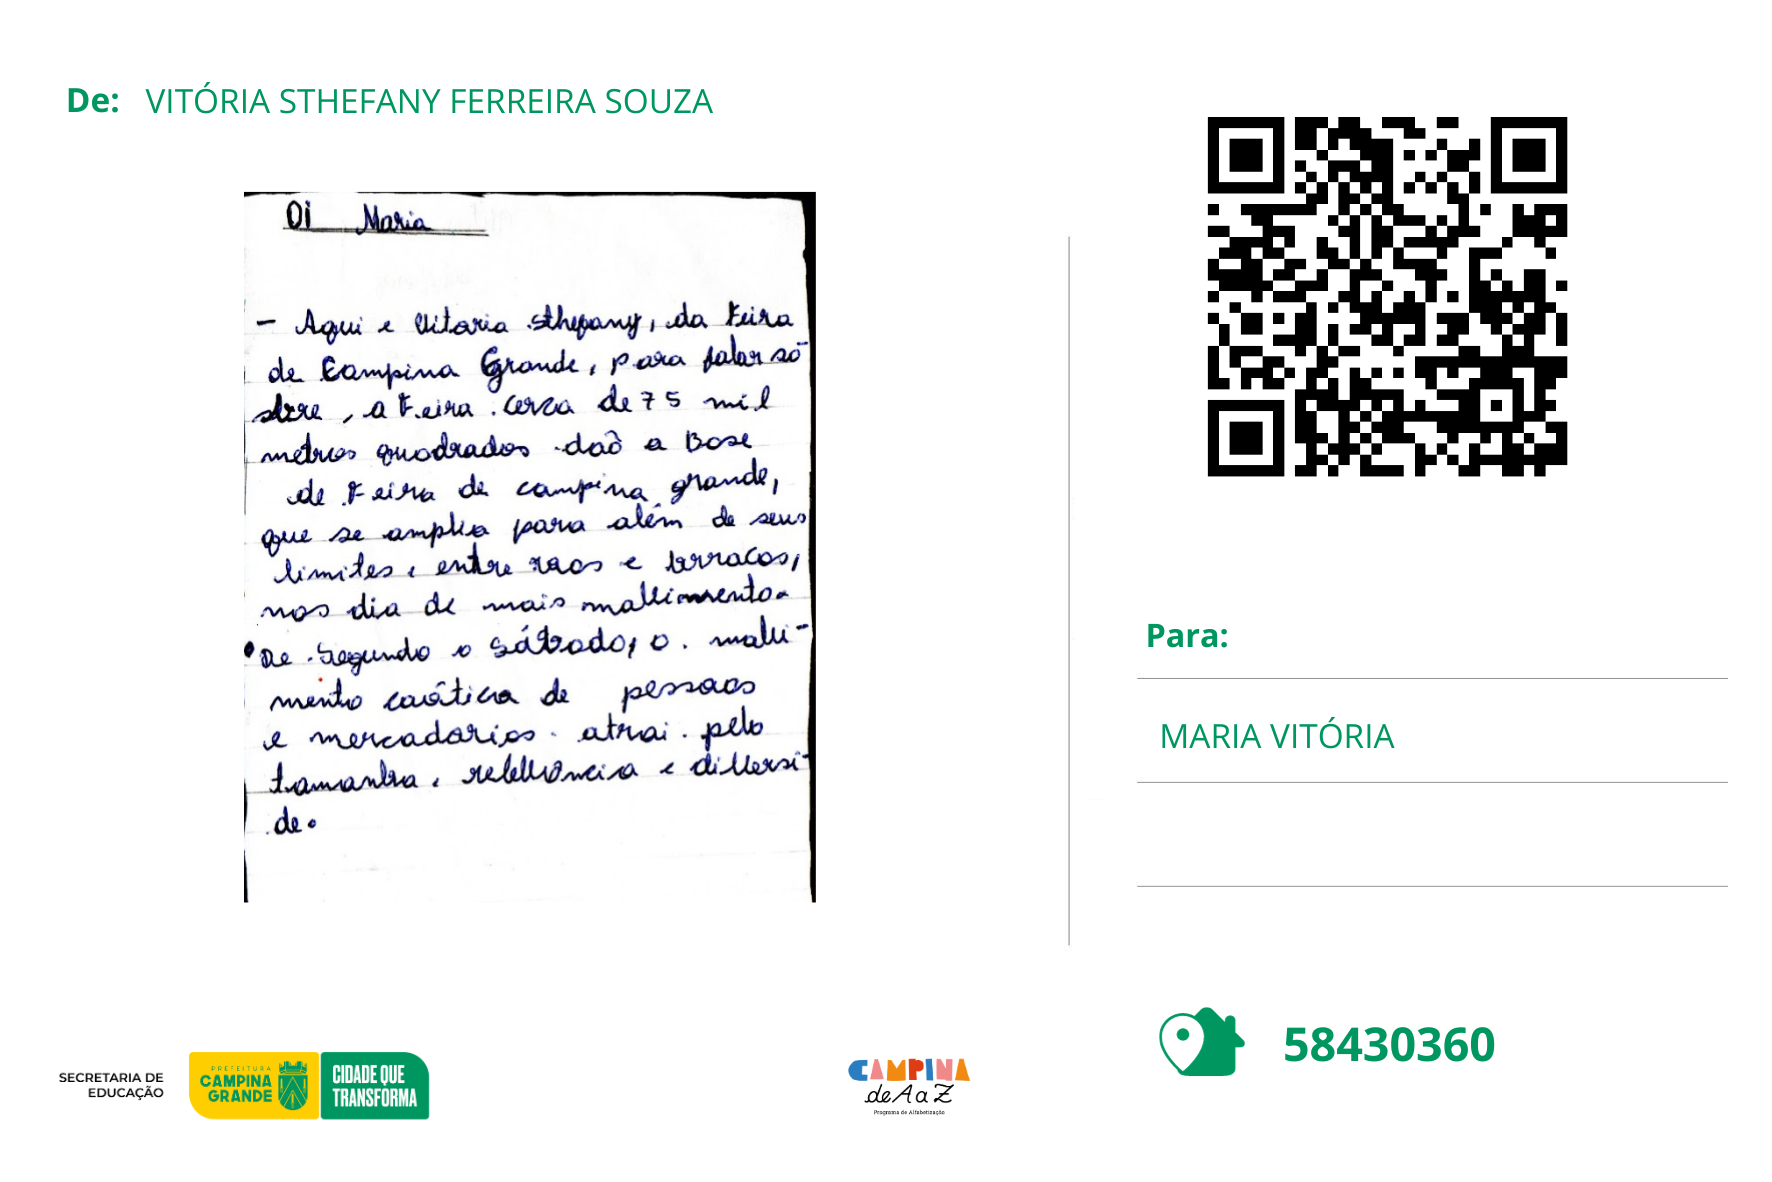 De: VITÓRIA STHEFANY FERREIRA SOUZA
Oi Maria
- Aqui e Vitoria sthepany, da Feira
de Campina Grande, para falar só
dre, a Feira. cerca de 75 mil
metros quadrados daõ a Base
de Feira de campina grande,
que se amplia para além de seus
limites, entre raos e barracos,
nos dia de mais mallimento.
• De segundo o sábado, o. malli-
mento caótica de pessoas
e mercadorias. atrai. pelo
tamanha, relellância e dillersi-
de.
Para:
MARIA VITÓRIA
58430360
SECRETARIA DE
EDUCAÇÃO
PREFEITURA
CAMPINA
GRANDE
CIDADE QUE
TRANSFORMA
CAMPINA
de A a Z
Programa de Alfabetização